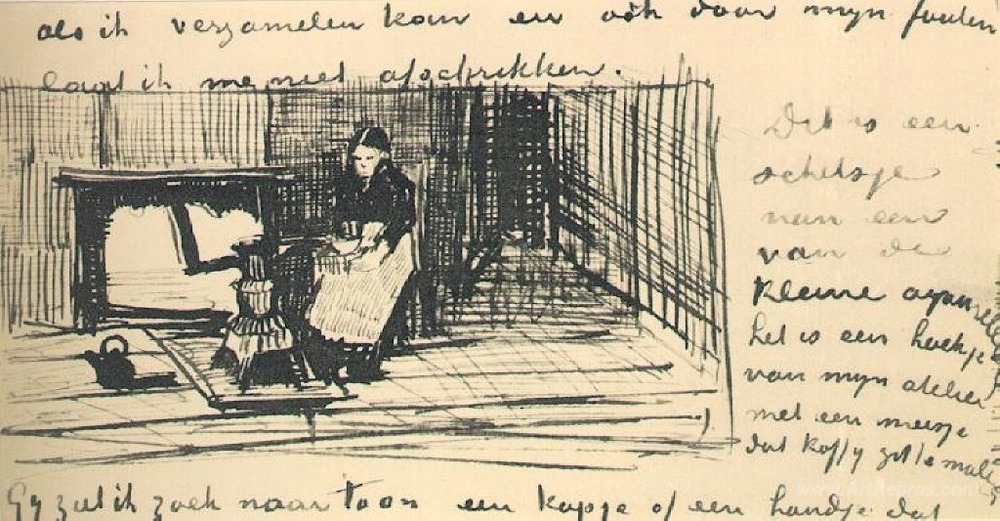 als ik verzamelen kan en ook door mijn fouten
laat ik me niet afschrikken.
Dit is een
schetsje
van een
van de
kleine aquarellen
het is een hoekje
van mijn atelier
met een meisje
dat koffy zit te malen
Gy ziet ik zoek naar toon een kopje of een handje dat